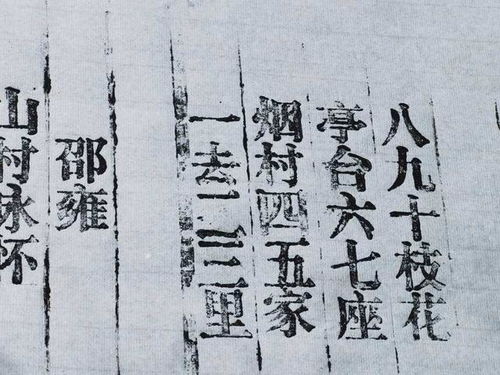 山村咏怀
邵雍
一去二三里
烟村四五家
亭台六七座
八九十枝花